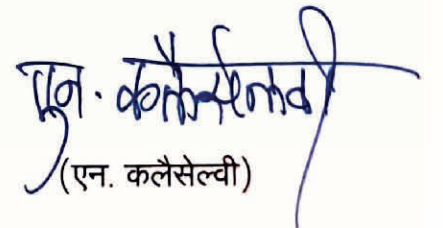 एन. कलैसेल्वी
(एन. कलैसेल्वी)